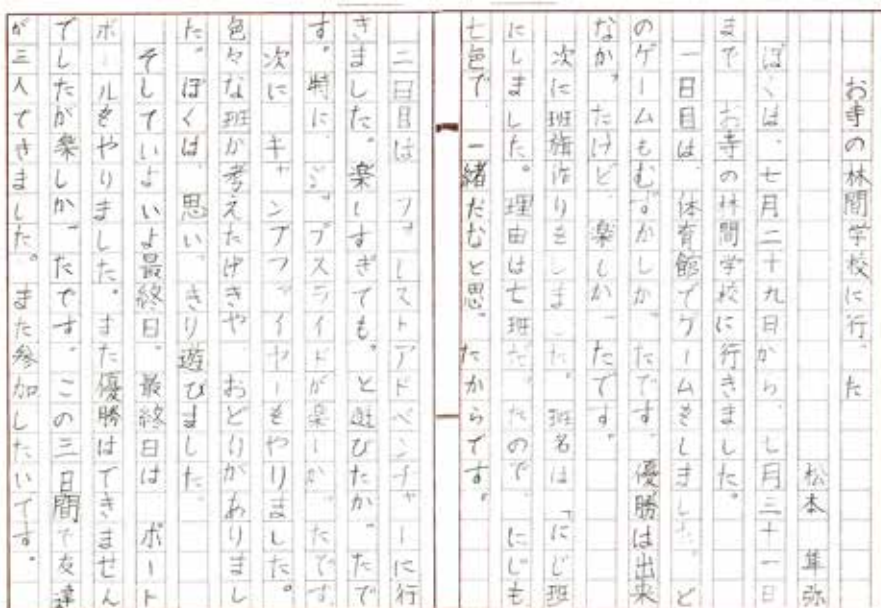 お寺の林間学校に行った
松本 隼弥
ぼくは、七月二十九日から、七月三十一日
まで、お寺の林間学校に行きました。
一日目は、体育館でゲームをしました。ど
のゲームもむずかしかったです。優勝は出来
なかったけど、楽しかったです。
次に班旗作りをしました。班名は「にじ班
にしました。理由は七班だったので、にじも
七色で、一緒だなと思ったからです。
二日目は、フォレストアドベンチャーに行
きました。楽しすぎても。と遊びたかったで
す。特に、ジップスライドが楽しかったです
次に、キャンプファイヤーをやりました。
色々な班が考えたげきや、おどりがありまし
た。ぼくは、思いっきり遊びました。
そしていよいよ最終日。最終日は、ポート
ボールをやりました。また優勝はできません
でしたが楽しかったです。この三日間で友達
が三人できました。また参加したいです。